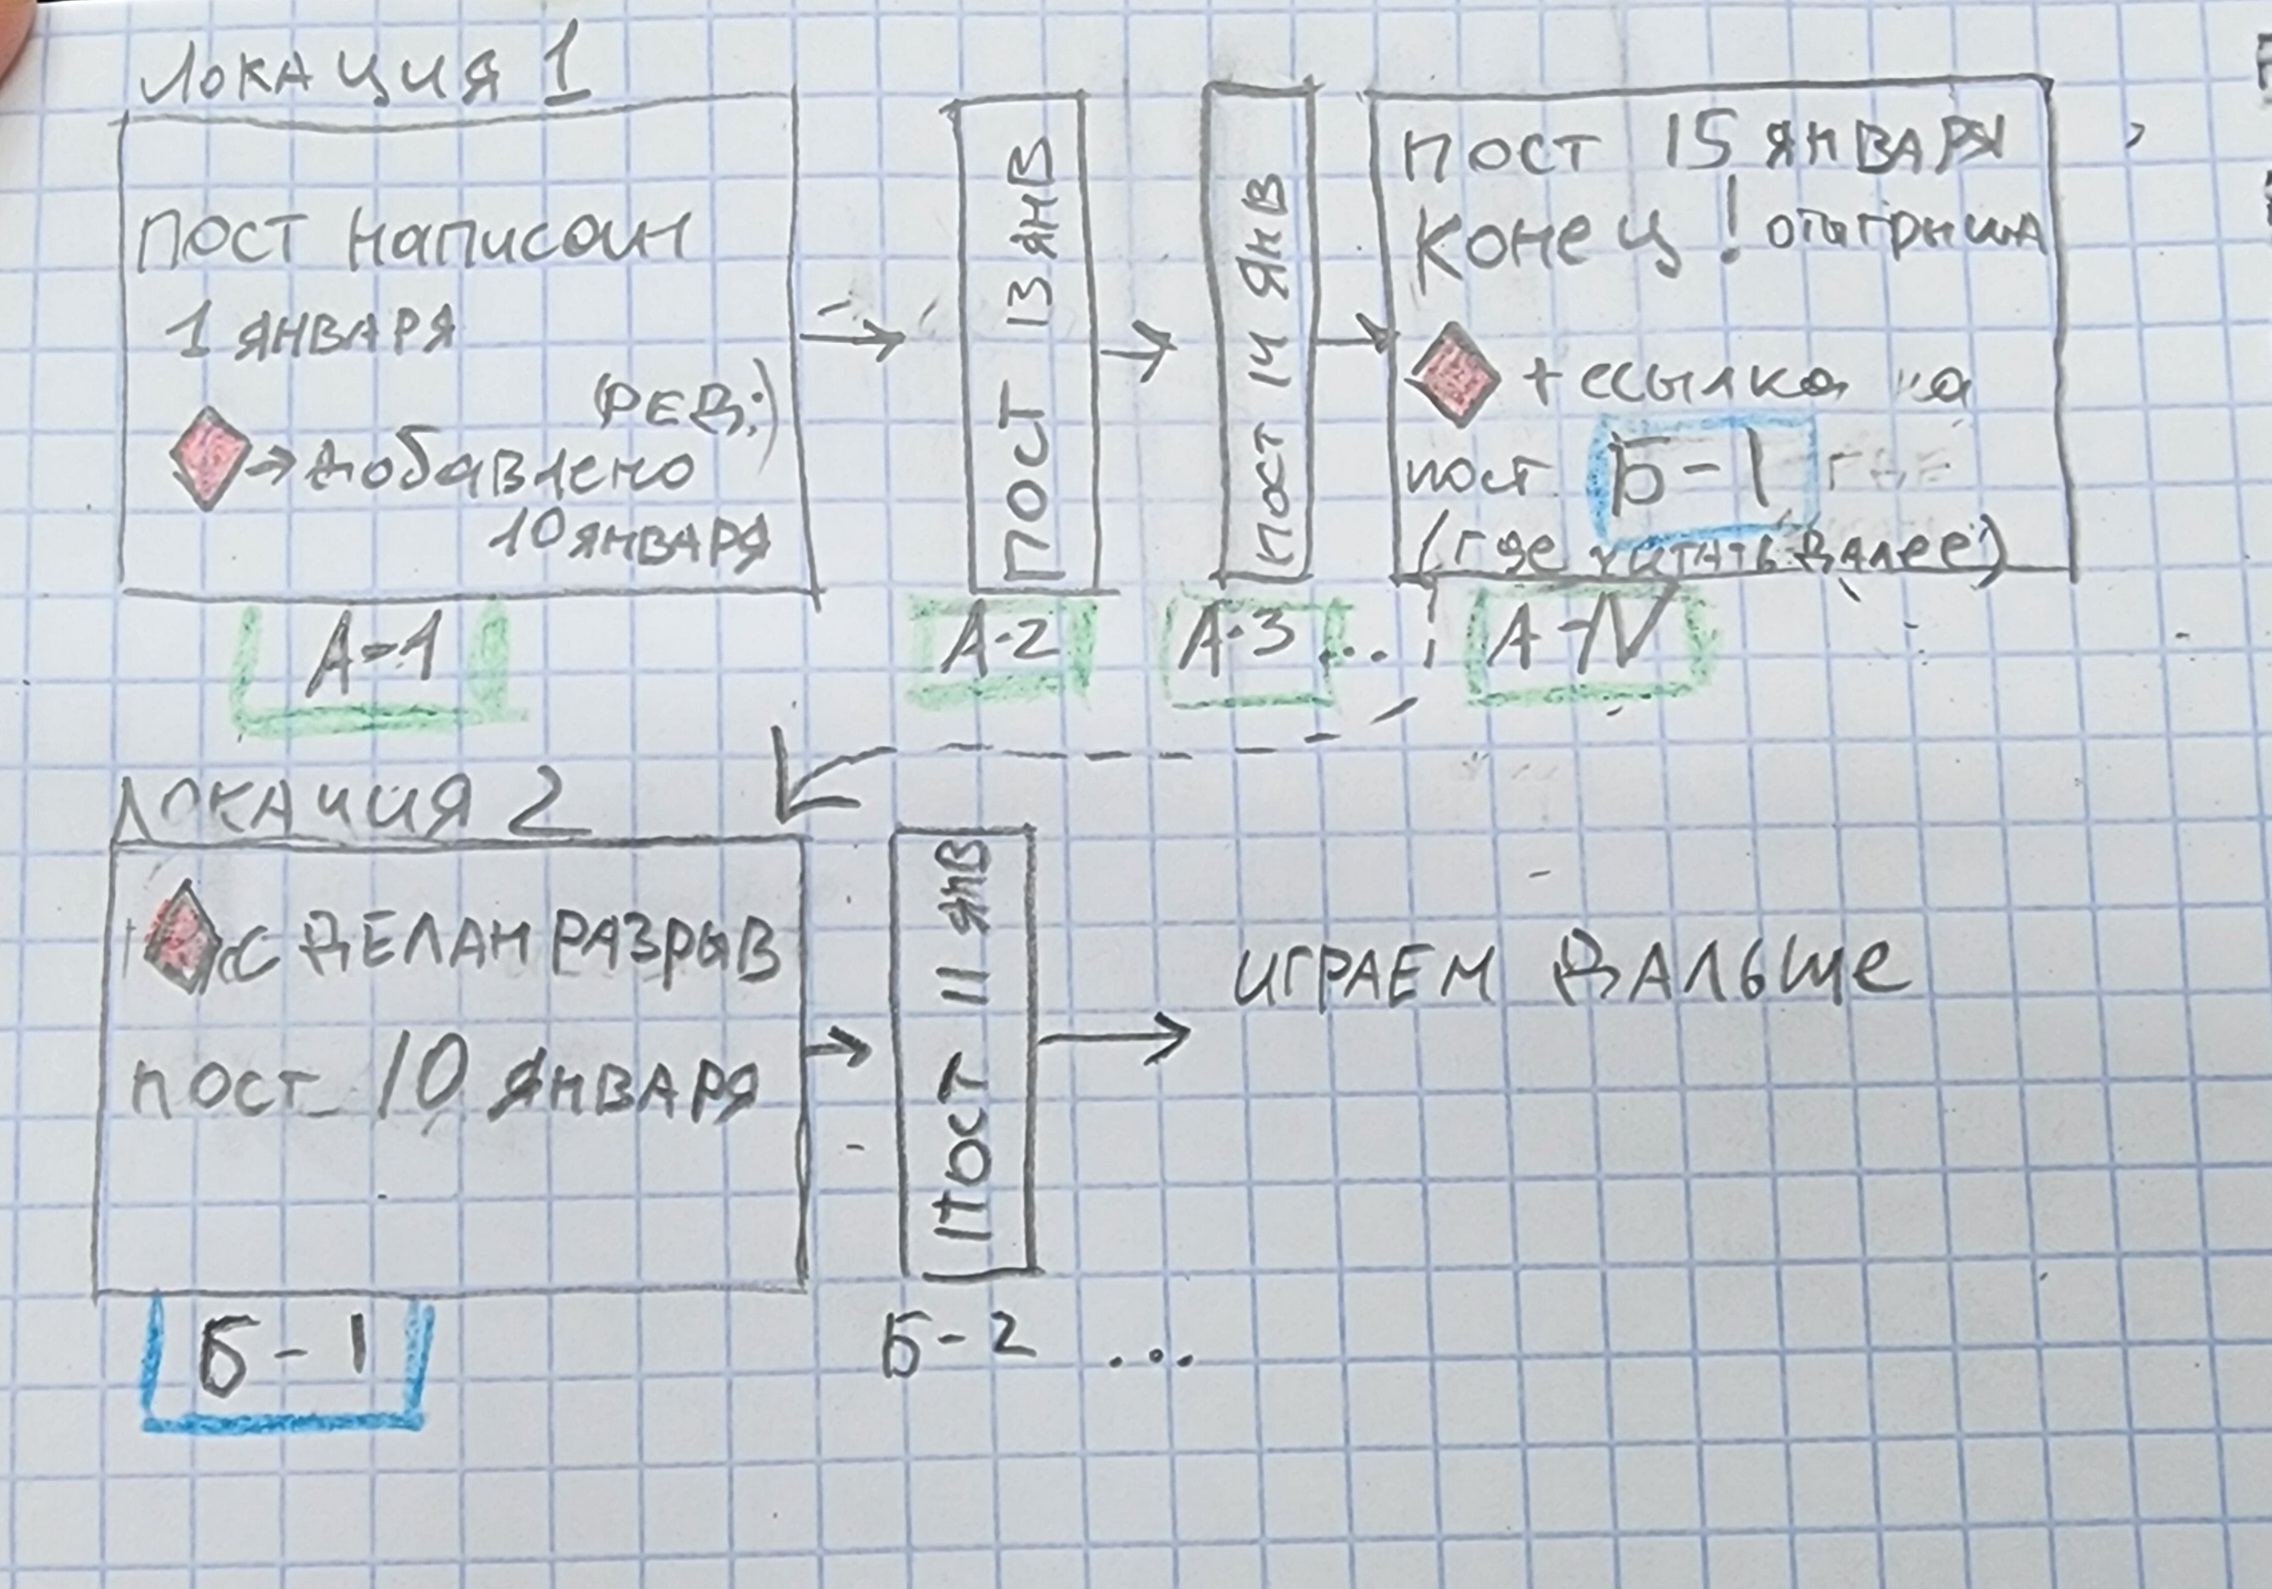 ЛОКАЦИЯ 1
пост написан
1 ЯНВАРЯ
(РЕД.)
→ добавлено
10 ЯНВАРЯ
А-1
ПОСТ 13 ЯНВ
А-2
ПОСТ 14 ЯНВ
А-3 ...
ПОСТ 15 ЯНВАРЯ
КОНЕЦ!
+ ссылка на
пост Б-1
(где читать далее)
А-N
ЛОКАЦИЯ 2
СДЕЛАН РАЗРЫВ
пост 10 ЯНВАРЯ
Б-1
ПОСТ 11 ЯНВ
Б-2 ...
ИГРАЕМ ДАЛЬШЕ